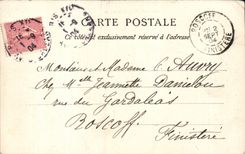 CARTE POSTALE
Ce côté est exclusivement réservé à l'adresse
ROSCOFF
FINISTERE
Monsieur et Madame L. Auvry
chez Mlle Jeannette Danielou
rue du Gardaléas
Roscoff.
Finistère